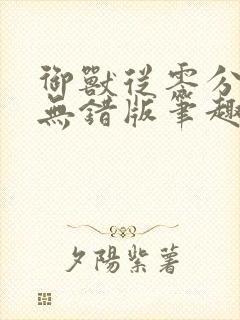 御獸從零分
無錯版筆趣
夕陽紫薯